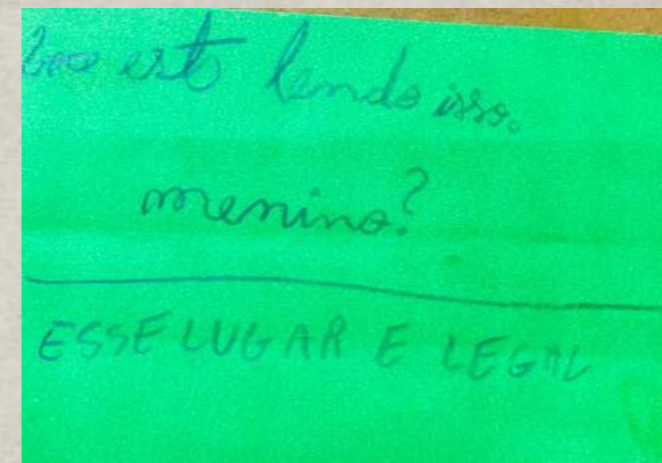 está lendo isso.
menino?
ESSE LUGAR E LEGAL